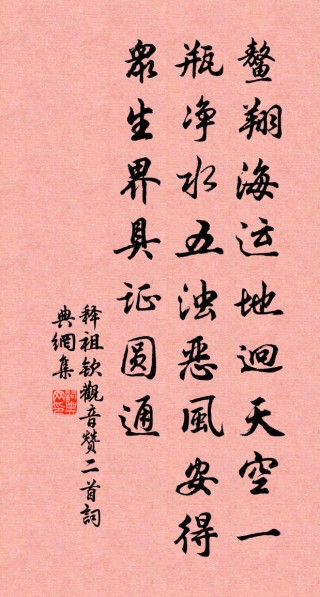 鳌翔海运地迴天空一
瓶净水五浊恶風安得
眾生界具证圆通
释祖钦觀音赞二首詞
典網集